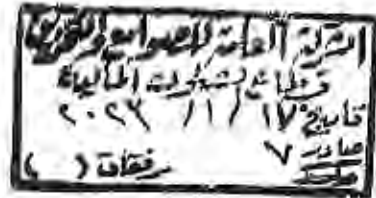 الشركة العامة للصوامع والتخزين
قطاع الشئون المالية
تاريخ ١٧ / ١١ / ٢٠٢٢
صادر ٧
مرفقات ( )